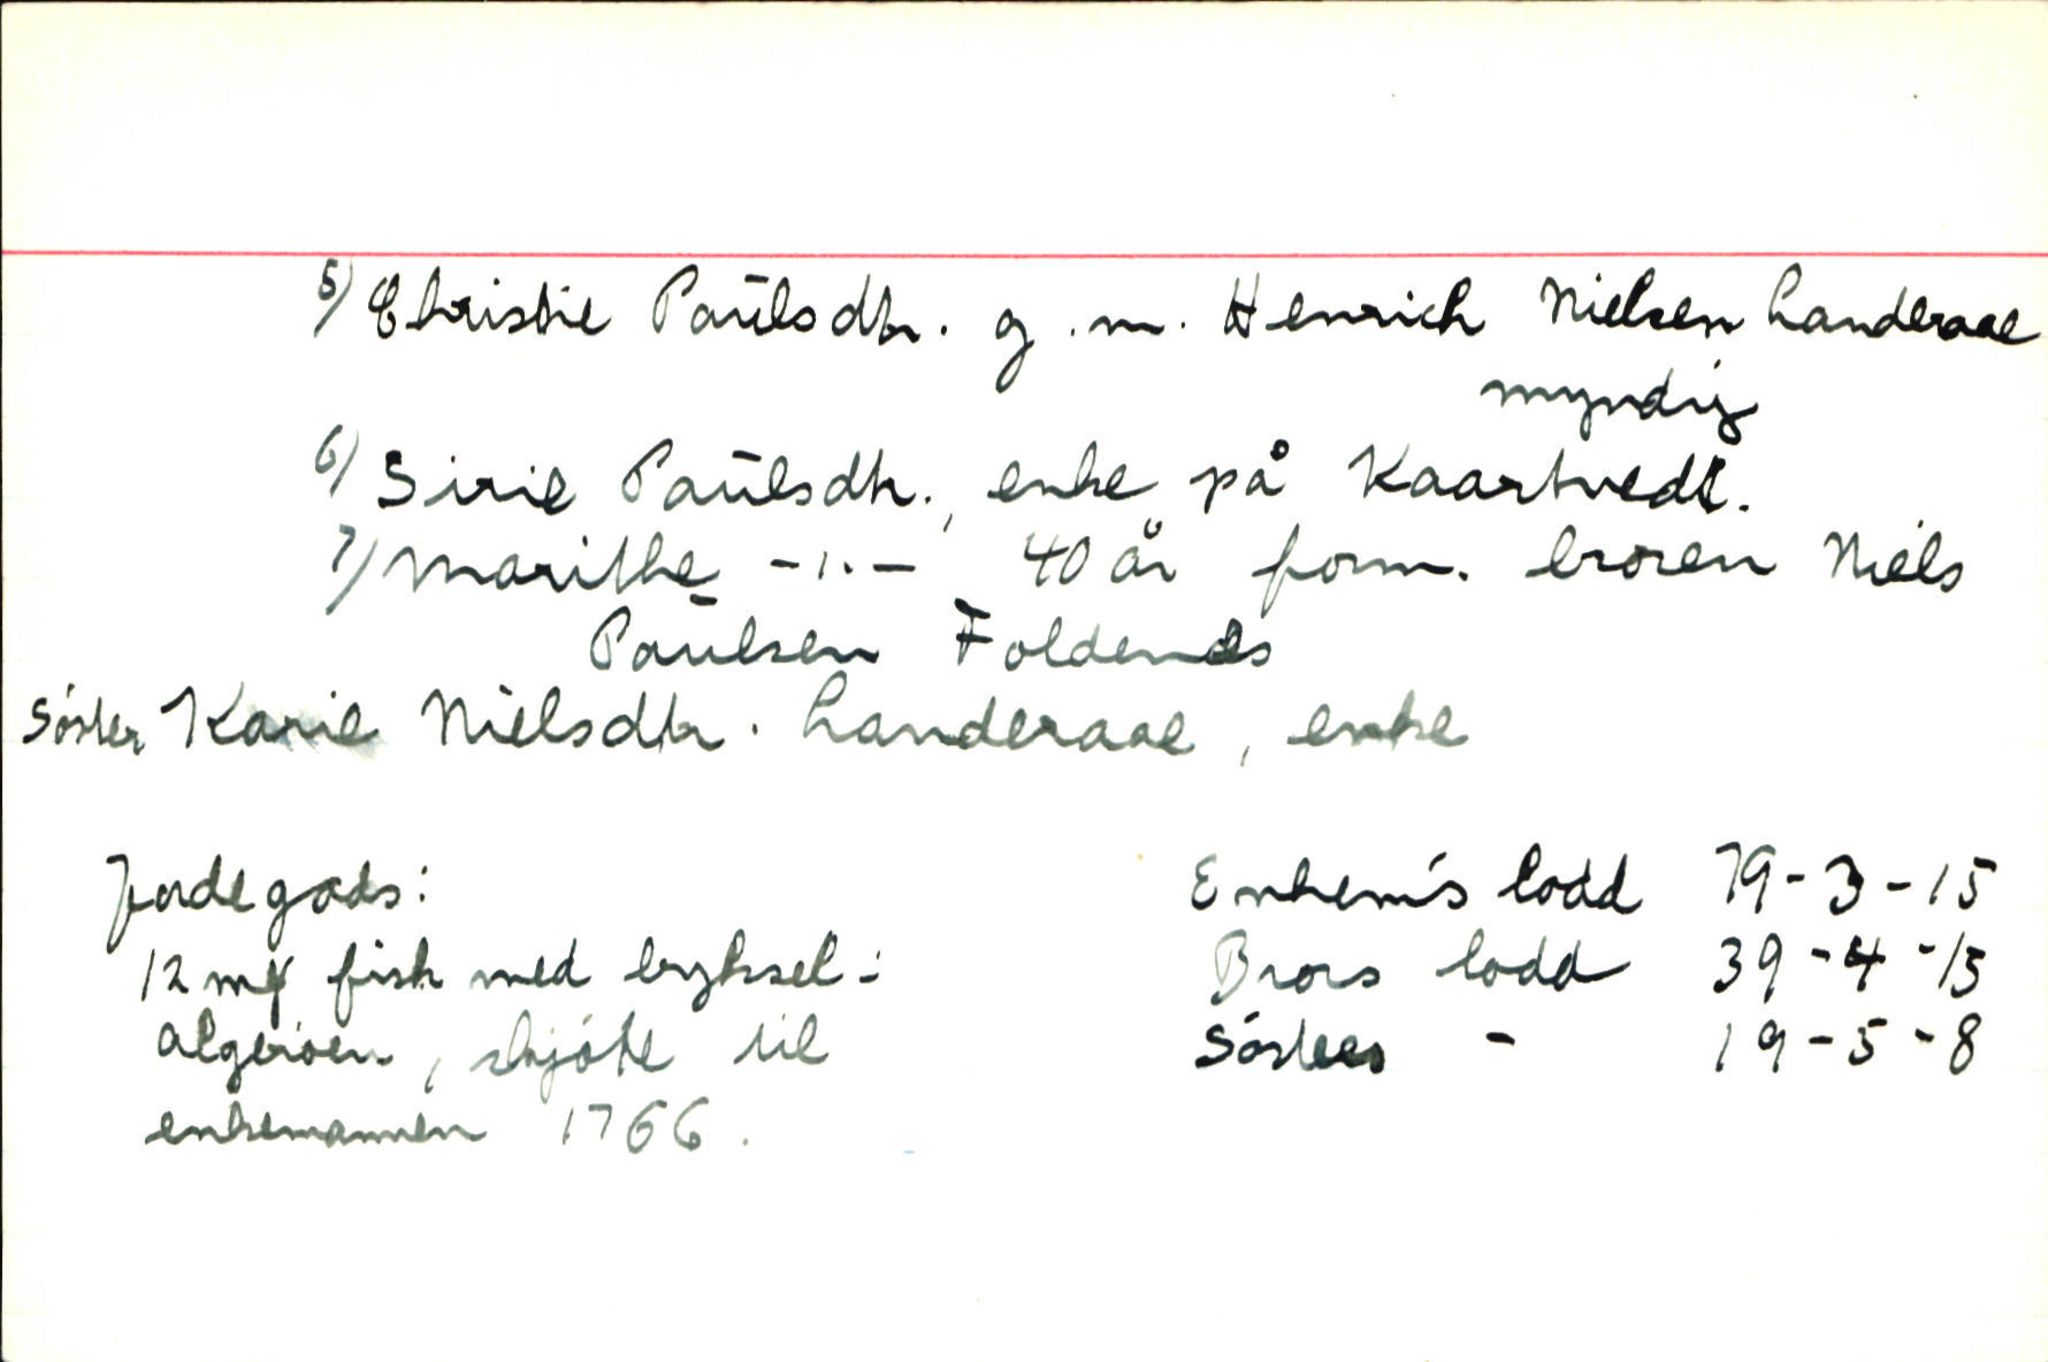 5) Christie Paulsdtr. g.m. Henrich Nielsen Landeraae
myndig
6) Sirie Paulsdtr., enke på Kaartvedt.
7) Marithe -"- 40 år form. broren Niels
Paulsen Foldenæs
Söster Karie Nielsdtr. Landeraae, enke
Jordegods:
12 mk fisk med bryksel i
Algeröen, skjöte til
enkemannen 1766.
Enkem's lodd 79-3-15
Brors lodd 39-4-15
Sösters - 19-5-8